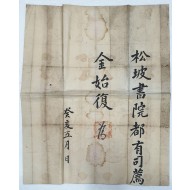 松坡書院都有司薦
金始復
癸亥五月 日